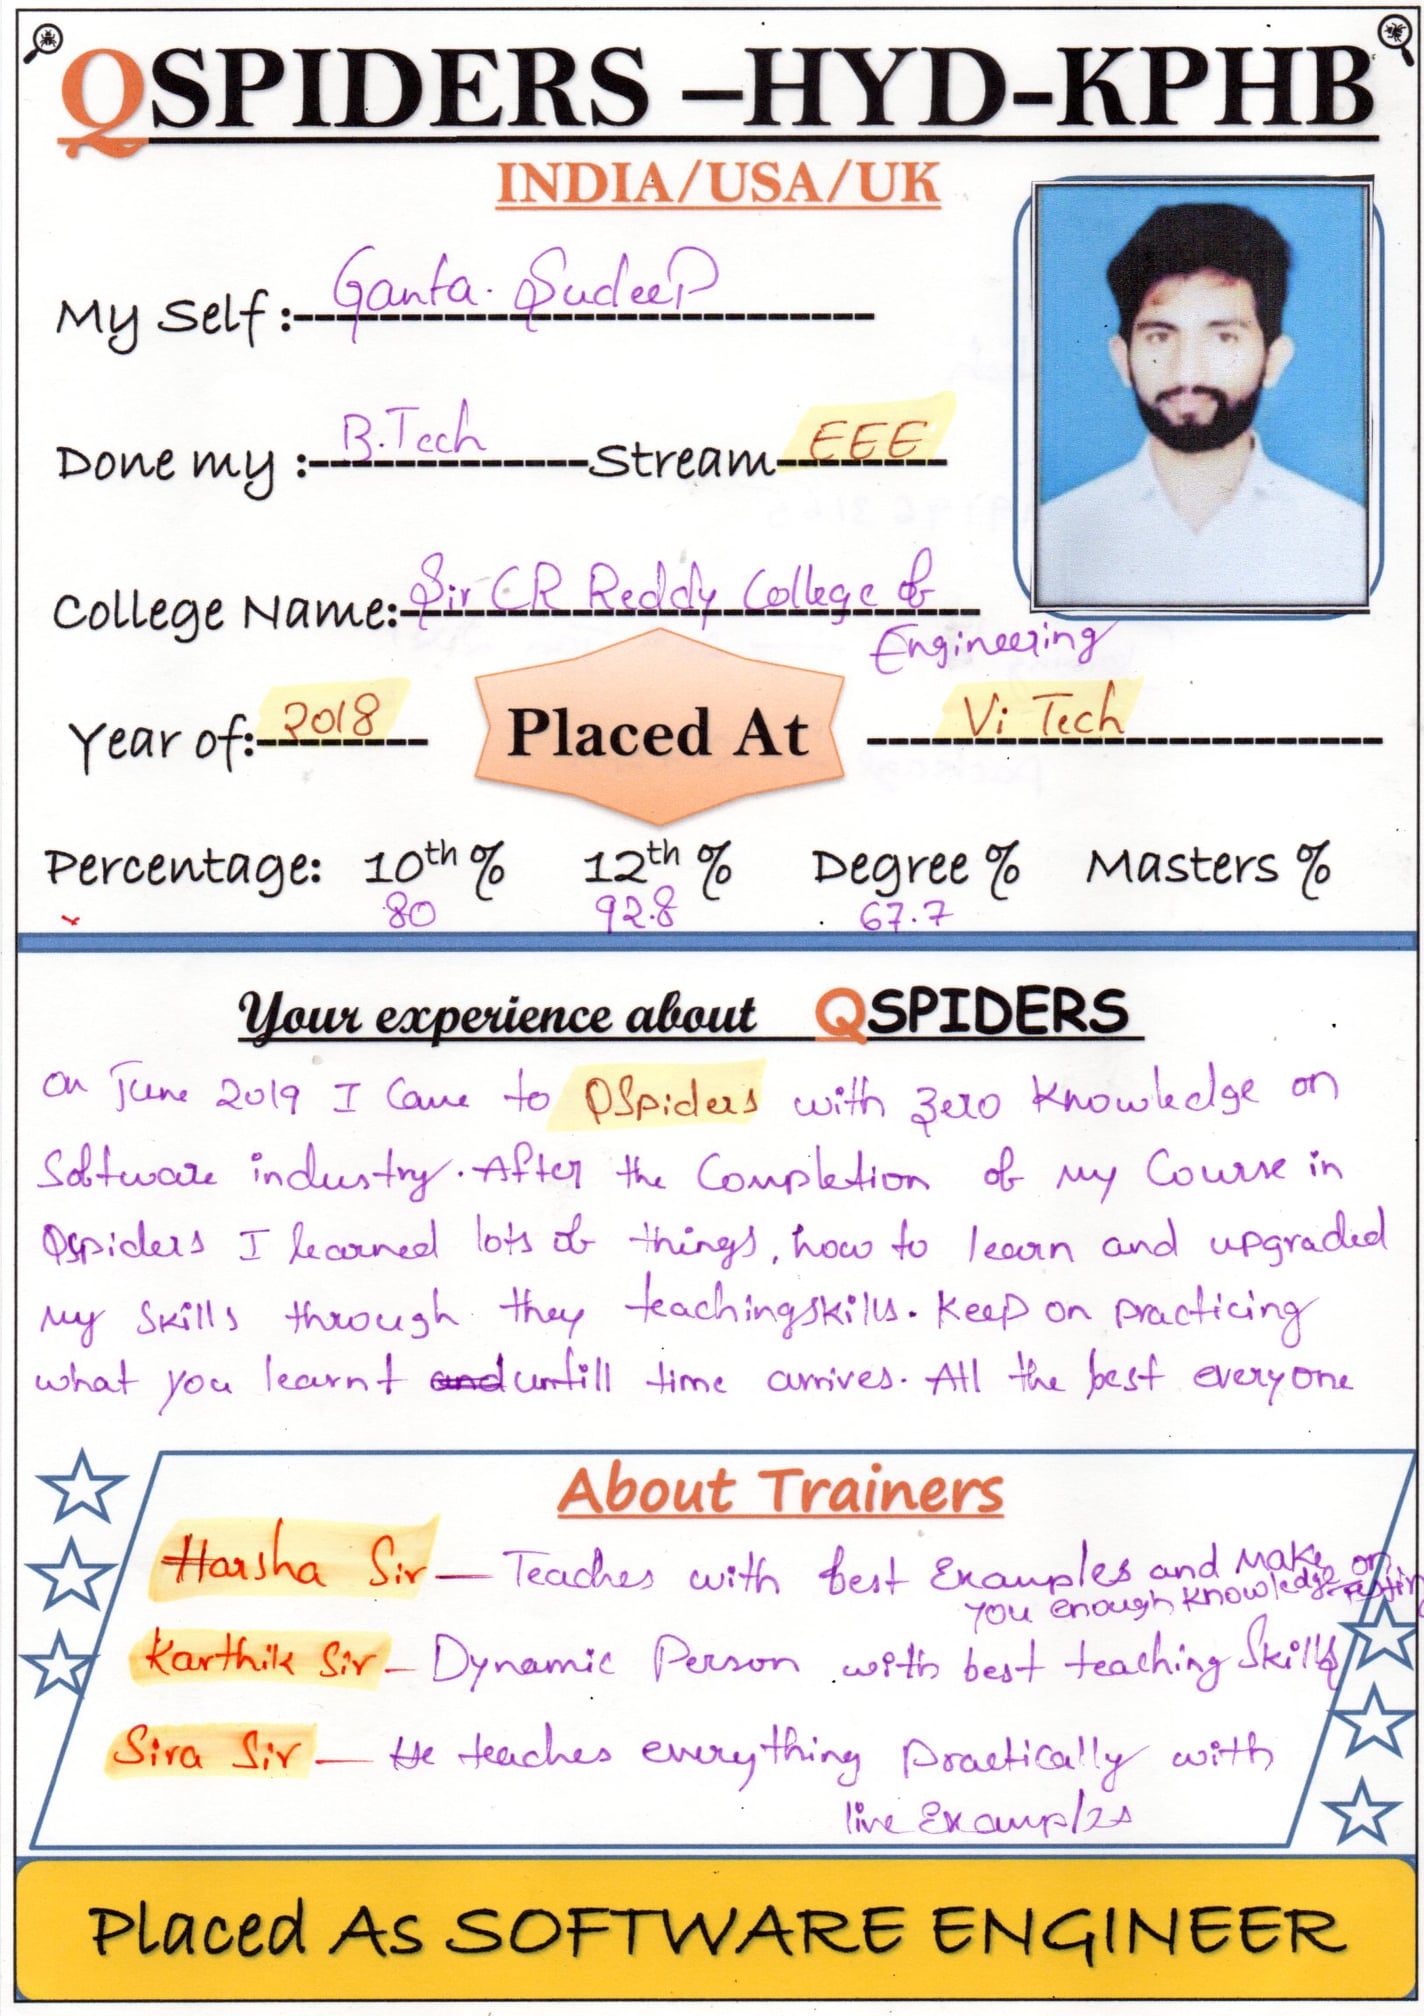 QSPIDERS –HYD-KPHB
INDIA/USA/UK
My Self : Ganta. Sudeep
Done my : B.Tech Stream EEE
College Name: Sir CR Reddy College of
Engineering
Year of: 2018 Placed At Vi Tech
Percentage: 10th % 12th % Degree % Masters %
80 92.8 67.7
Your experience about QSPIDERS
on June 2019 I Came to QSpiders with zero knowledge on
Software industry. After the Completion of my Course in
Qspiders I learned lots of things, how to learn and upgraded
my skills through they teachingskills. Keep on practicing
what you learnt and untill time arrives. All the best everyone
About Trainers
Harsha Sir — Teaches with best Examples and Make
you enough knowledge on testing
Karthik Sir – Dynamic Person with best teaching Skills
Sira Sir — He teaches everything practically with
live Examples
Placed As SOFTWARE ENGINEER